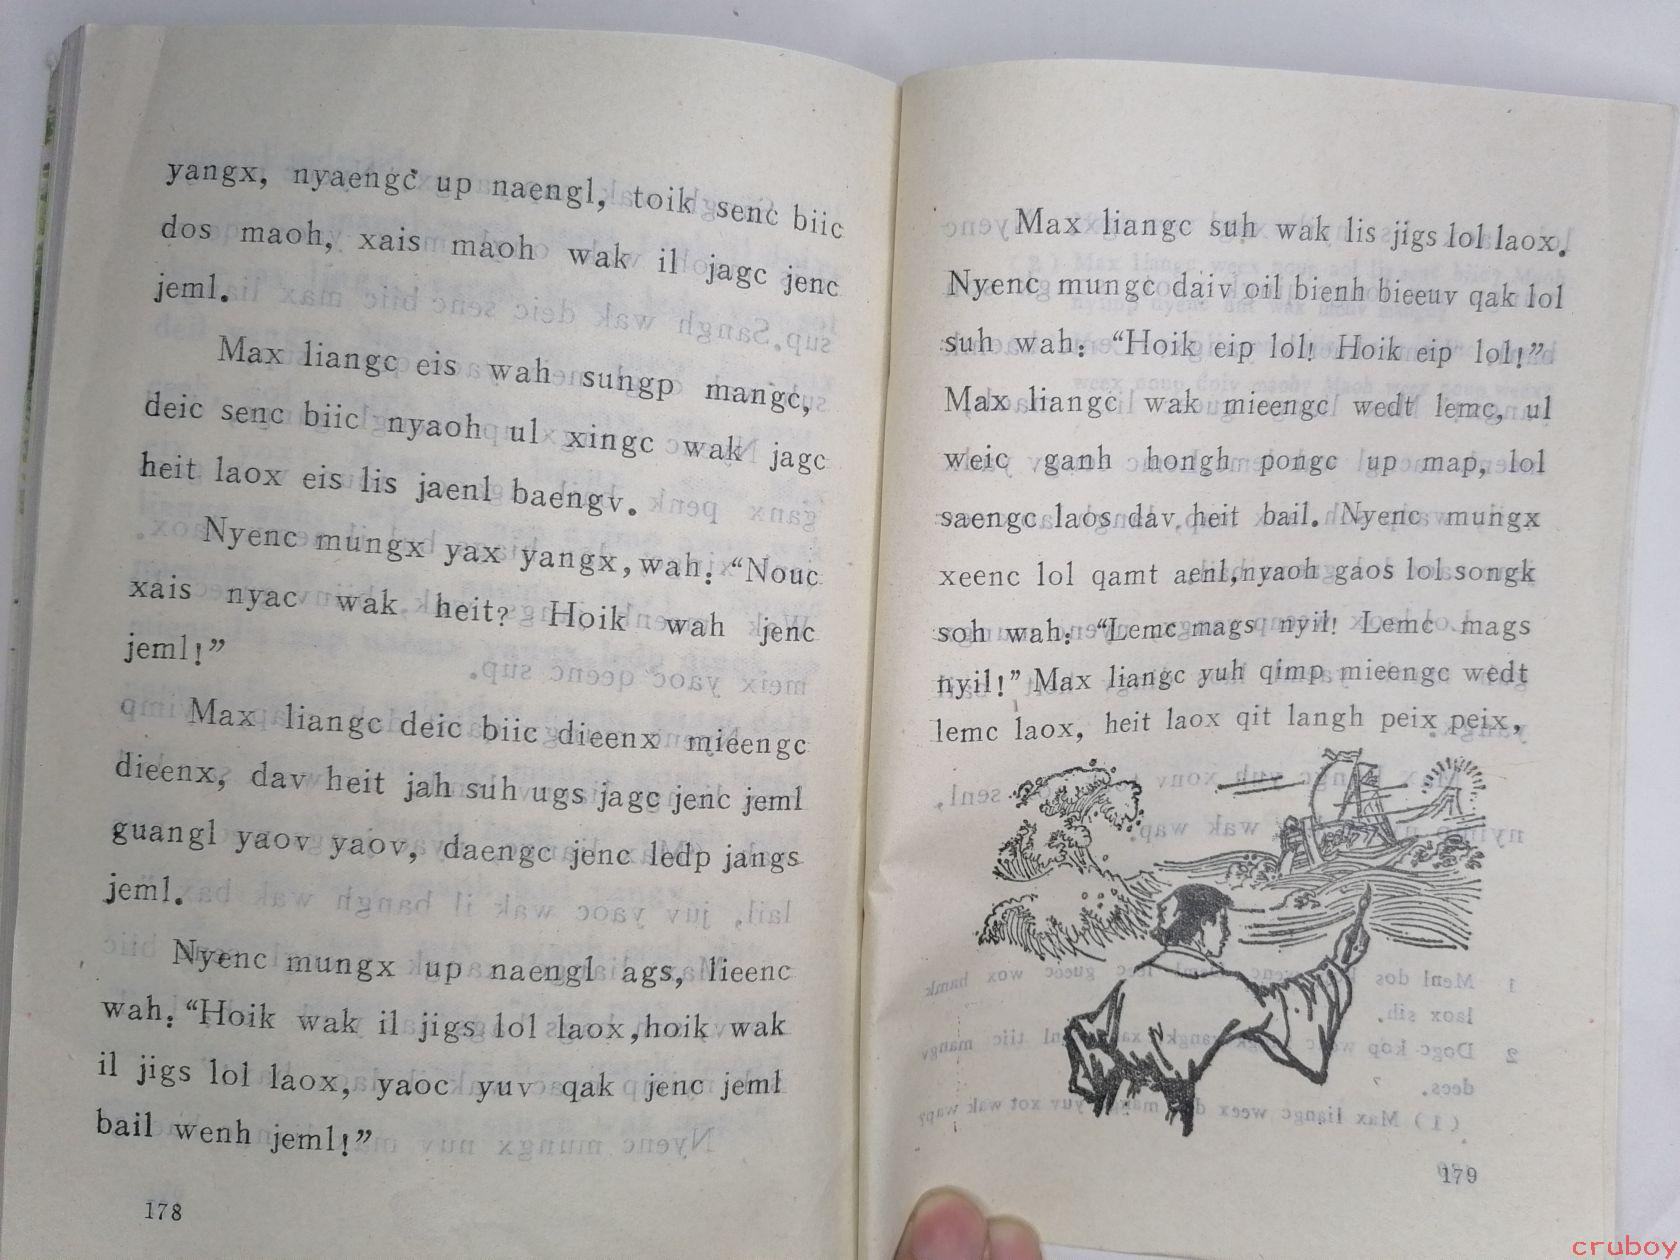 yangx, nyaengc up naengl, toik senc biic
dos maoh, xais maoh wak il jagc jenc
jeml.
Max liangc eis wah sungp mangc,
deic senc biic nyaoh ul xingc wak jagc
heit laox eis lis jaenl baengv.
Nyenc mungx yax yangx, wah: “Nouc
xais nyac wak heit? Hoik wah jenc
jeml!”
Max liangc deic biic dieenx mieengc
dieenx, dav heit jah suh ugs jagc jenc jeml
guangl yaov yaov, daengc jenc ledp jangs
jeml.
Nyenc mungx up naengl ags, lieenc
wah: “Hoik wak il jigs lol laox, hoik wak
il jigs lol laox, yaoc yuv qak jenc jeml
bail wenh jeml!”
178
Max liangc suh wak lis jigs lol laox.
Nyenc mungc daiv oil bienh bieeuv qak lol
suh wah: “Hoik eip lol! Hoik eip lol!”
Max liangc wak mieengc wedt lemc, ul
weic ganh hongh pongc up map, lol
saengc laos dav heit bail. Nyenc mungx
xeenc lol qamt aenl, nyaoh gaos lol songk
soh wah: “Lemc mags nyil! Lemc mags
nyil!” Max liangc yuh qimp mieengc wedt
lemc laox, heit laox qit langh peix peix,
179
cruboy